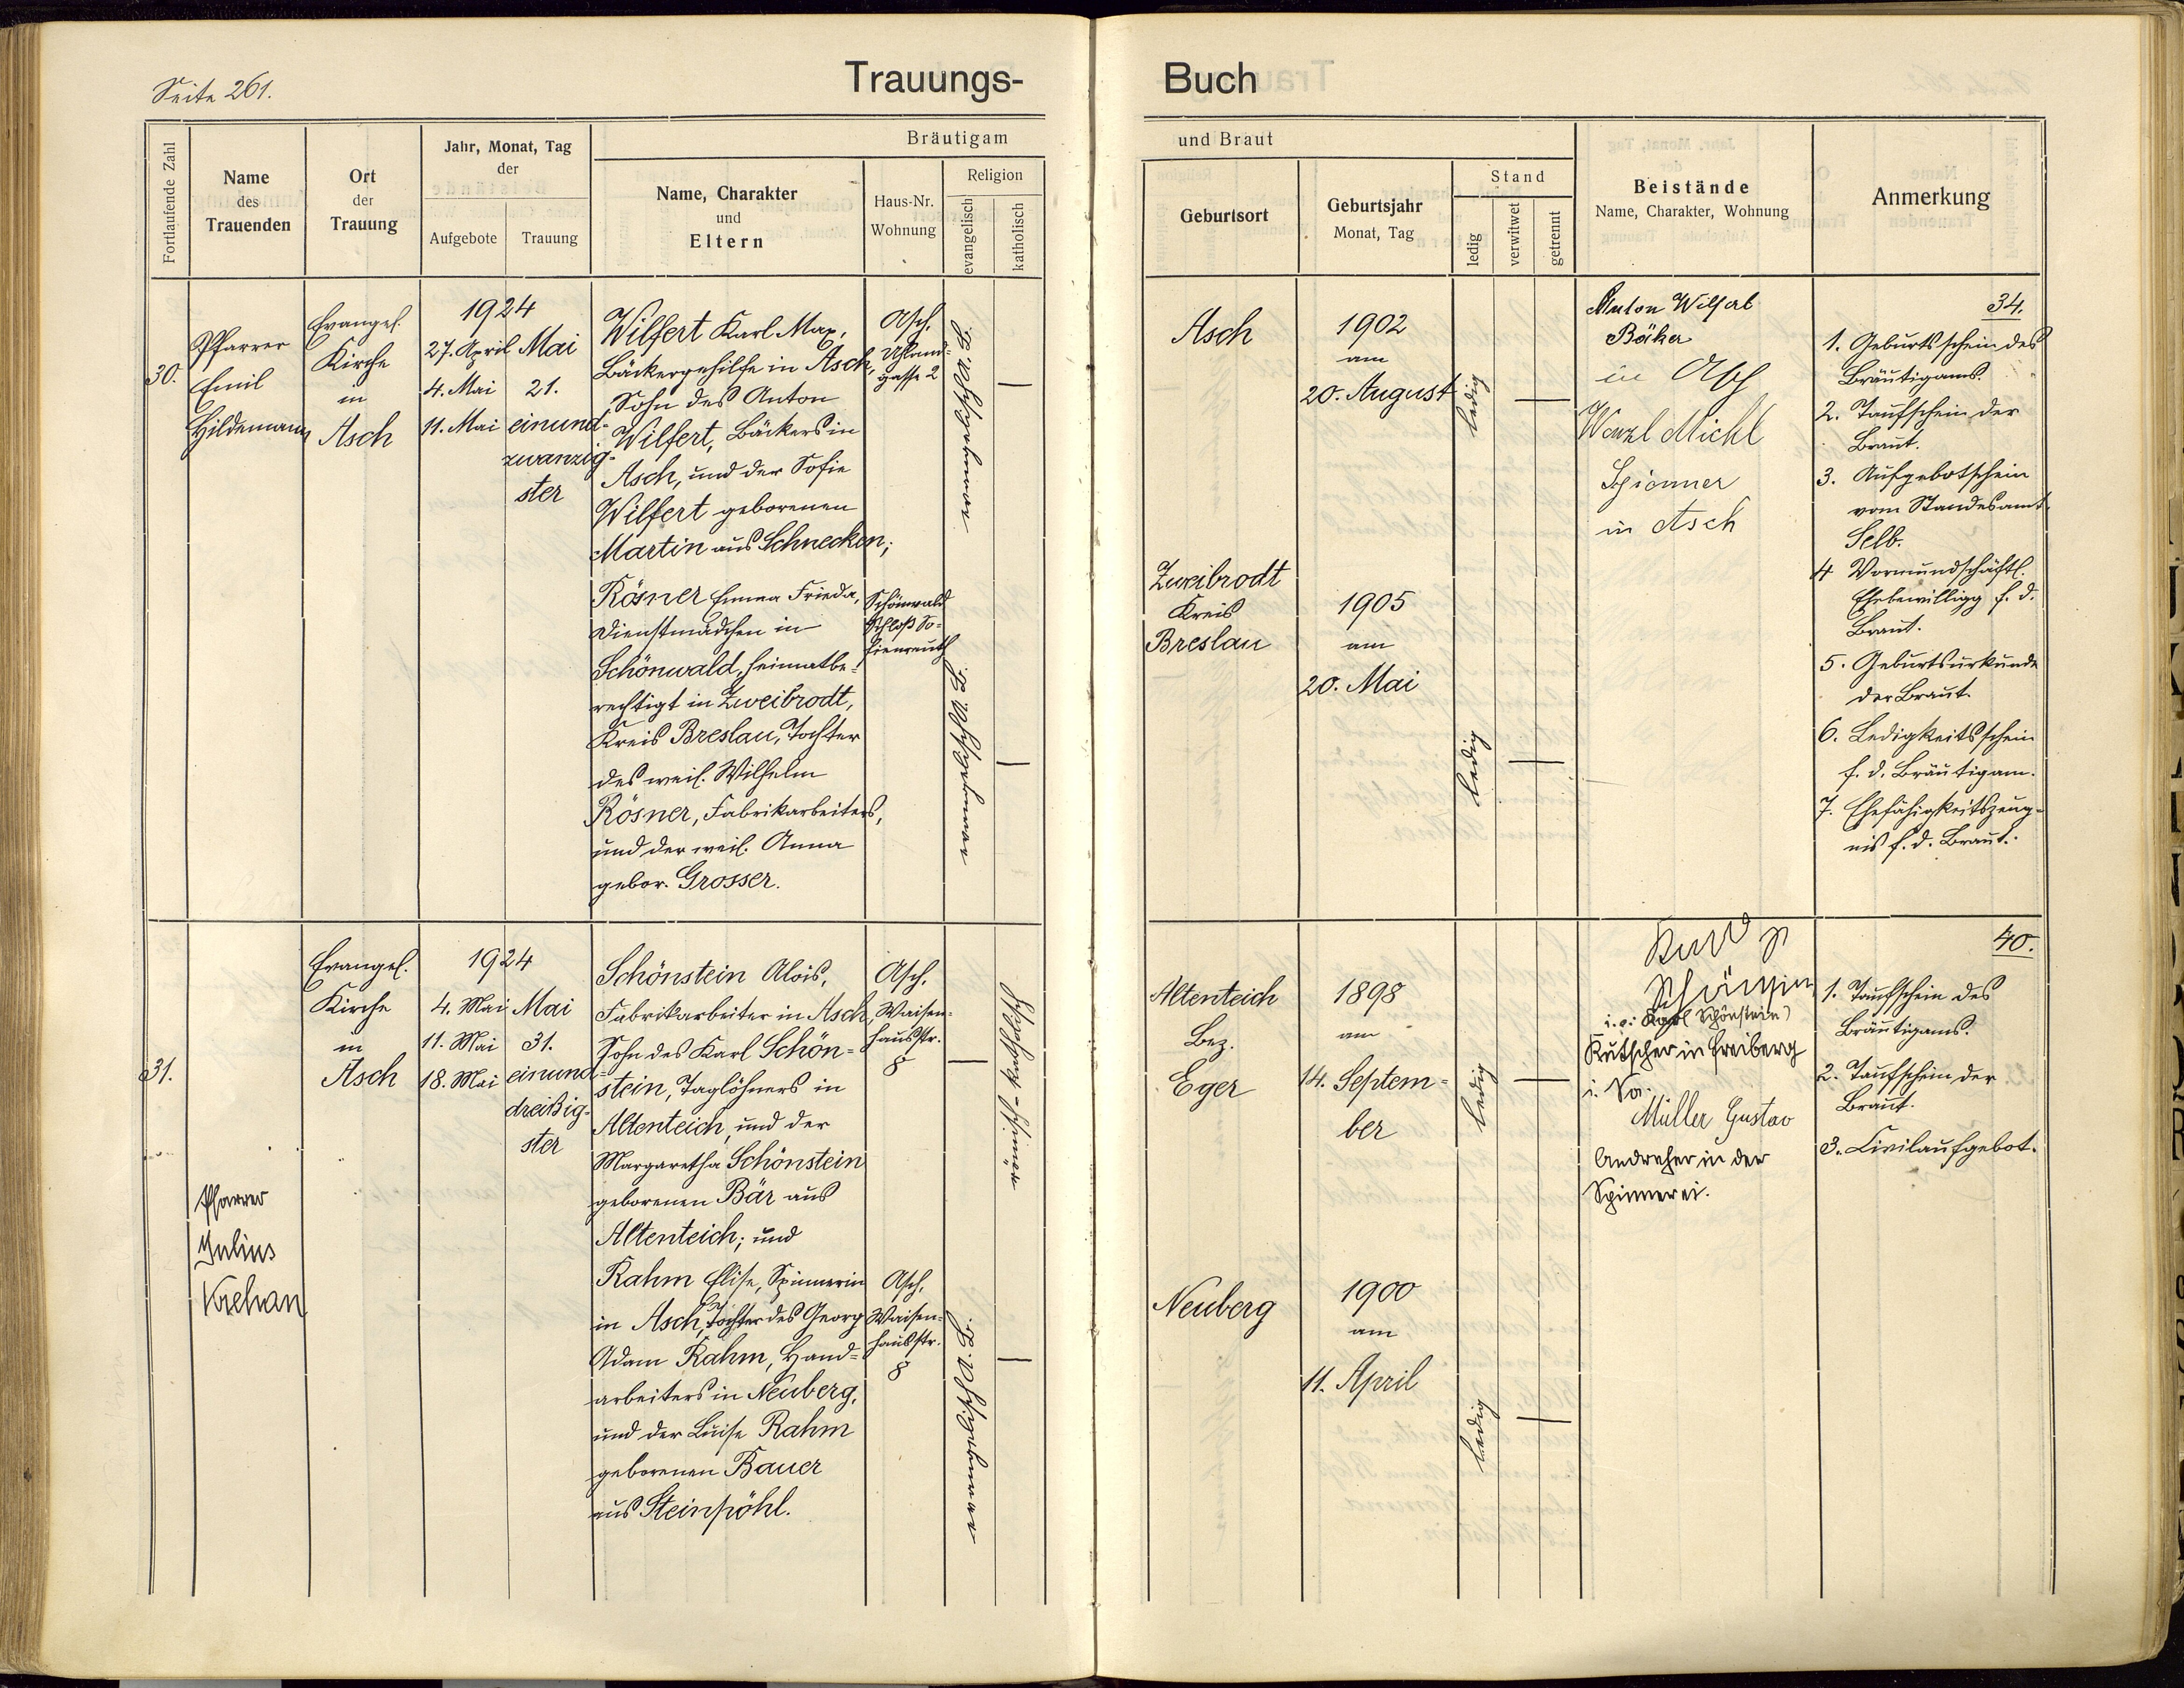 Seite 261.
Trauungs-
Buch
Fortlaufende Zahl
Name
des
Trauenden
Ort
der
Trauung
Jahr, Monat, Tag
der
Aufgebote
Trauung
Bräutigam
Name, Charakter
und
Eltern
Haus-Nr.
Wohnung
Religion
evangelisch
katholisch
und Braut
Geburtsort
Geburtsjahr
Monat, Tag
Stand
ledig
verwitwet
getrennt
Beistände
Name, Charakter, Wohnung
Anmerkung
30.
Pfarrer
Emil
Hildemann
Evangel.
Kirche
in
Asch
1924
27. April
4. Mai
11. Mai
Mai
21.
einund-
zwanzig-
ster
Wilfert Karl Max,
Bäckergehilfe in Asch,
Sohn des Anton
Wilfert, Bäckers in
Asch, und der Sofie
Wilfert geborenen
Martin aus Schnecken;
Asch,
Uhland-
gasse 2
evangelisch A. B.
Rösner Emma Frieda,
Dienstmädchen in
Schönwald, heimatbe-
rechtigt in Zweibrodt,
Kreis Breslau, Tochter
des weil. Wilhelm
Rösner, Fabrikarbeiters,
und der weil. Anna
gebor. Grosser.
Schönwald
Schloß So-
fienreuth
evangelisch A. B.
Asch
1902
am
20. August
ledig
Zweibrodt
Kreis
Breslau
1905
am
20. Mai
ledig
Anton Wilfert
Bäcker
in Asch
Wenzl Michl
Spinner
in Asch
34.
1. Geburtsschein des
Bräutigams.
2. Taufschein der
Braut.
3. Aufgebotschein
vom Standesamt
Selb.
4 Vormundschaftl.
Ehebewilligg f. d.
Braut.
5. Geburtsurkunde
der Braut.
6. Ledigkeitsschein
f. d. Bräutigam.
7. Ehefähigkeitszeug-
nis f. d. Braut.
31.
Pfarrer
Julius
Krehan
Evangel.
Kirche
in
Asch
1924
4. Mai
11. Mai
18. Mai
Mai
31.
einund-
dreißig-
ster
Schönstein Alois,
Fabrikarbeiter in Asch,
Sohn des Karl Schön-
stein, Taglöhners in
Altenteich, und der
Margaretha Schönstein
geborenen Bär aus
Altenteich; und
Asch,
Waisen-
hausstr.
8
römisch-katholisch
Rahm Elise, Spinnerin
in Asch, Tochter des Georg
Adam Rahm, Hand-
arbeiters in Neuberg,
und der Luise Rahm
geborenen Bauer
aus Steinpöhl.
Asch,
Waisen-
hausstr.
8
evangelisch A. B.
Altenteich
Bez.
Eger
1898
am
14. Septem-
ber
ledig
Neuberg
1900
am
11. April
ledig
Karl
(Karl Schönstein)
Kutscher in Freiberg
i. Sa.
Müller Gustav
Andreher in der
Spinnerei.
40.
1. Taufschein des
Bräutigams.
2. Taufschein der
Braut.
3. Civilaufgebot.